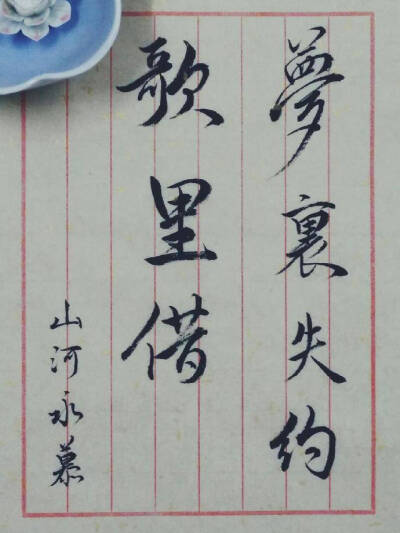 夢裏失约
歌里借
山河永慕